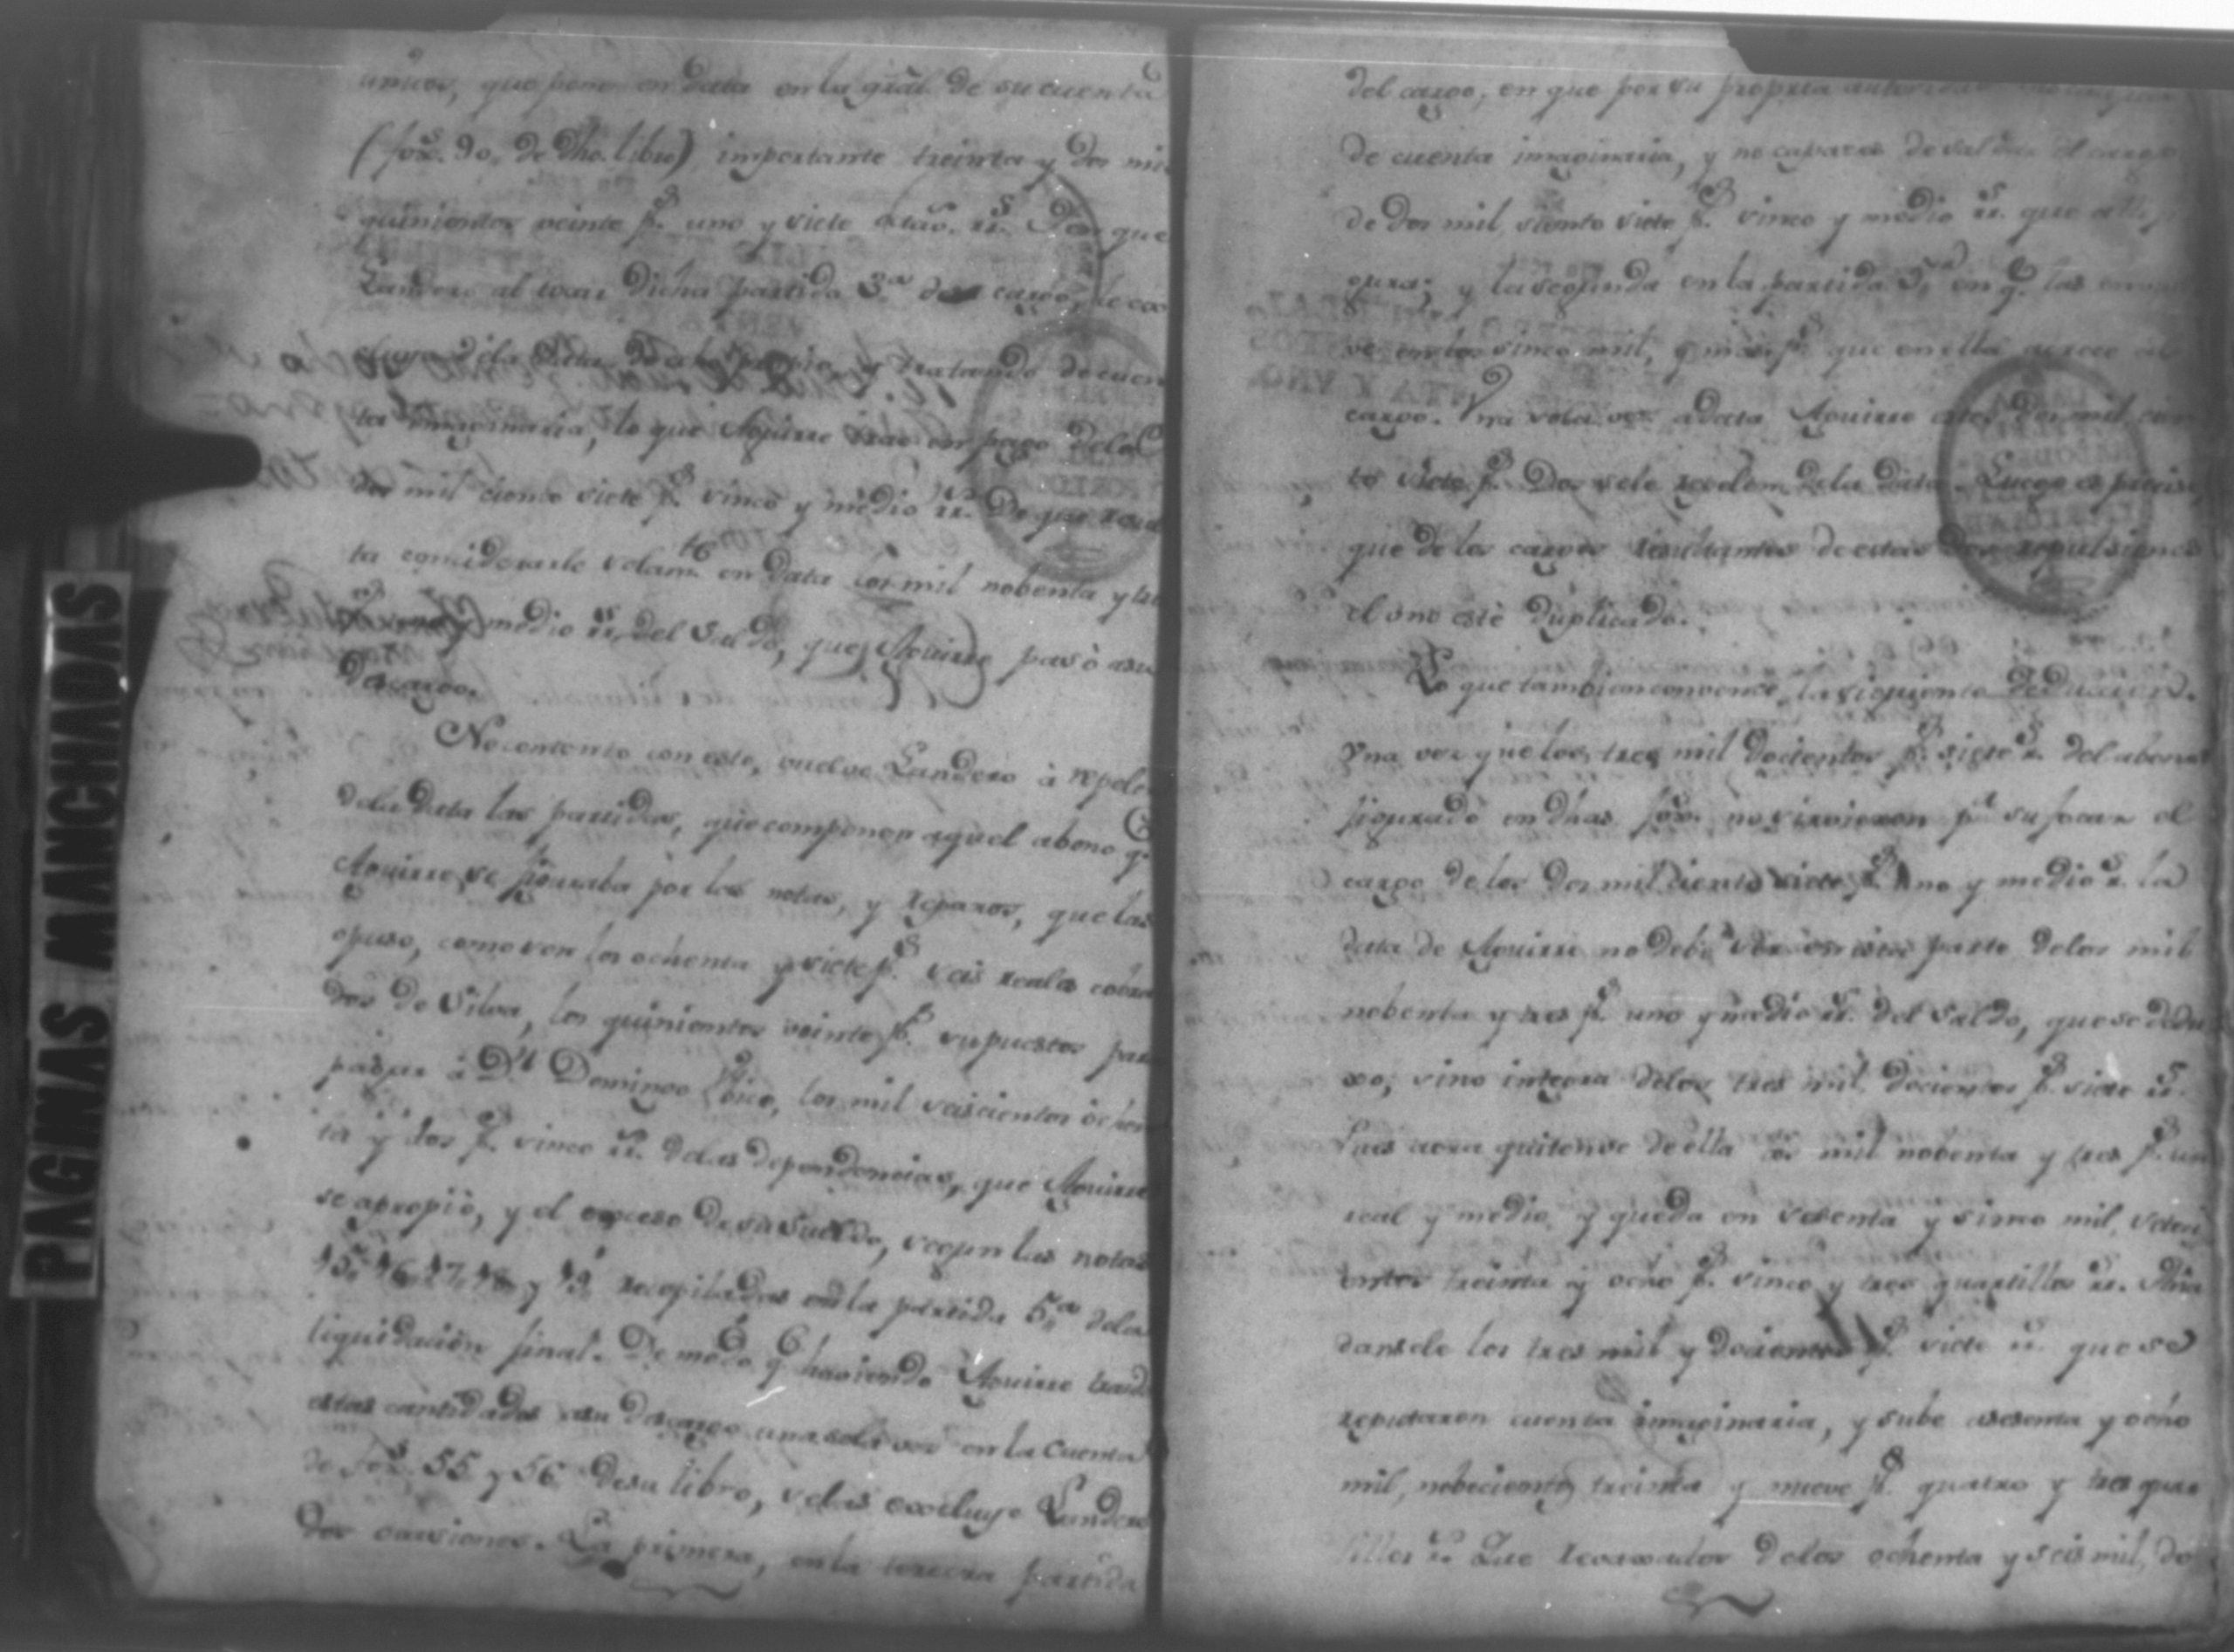 unico, que pone en data en la gral. de su cuenta
(fox.s 90, de dho. libro) importante treinta y dos mil
quinientos veinte p.s uno y siete octav. rr.s Por que
Landero al tocar dicha partida 3.a del cargo, le
de la data y tratando de cuen
ta imaginaria, lo que Aguirre trae en pago de los
dos mil ciento siete p.s cinco y medio rr.s De que resul
ta considerarle solam.te en data los mil nobenta y tres
p.s uno y medio rr.s del Saldo, que Aguirre pasò a su
Descargo.
No contento con esto, vuelve Landero à repeler
de la data las partidas, que componen aquel abono q.e
Aguirre se figuraba por las notas, y reparos, que las
opuso, como son los ochenta y siete p.s seis reales cobra
dos de Silva, los quinientos veinte p.s supuestos para
pagar à D.n Domingo Rico, los mil seiscientos ochen
ta y dos p.s cinco rr.s de las dependencias, que Aguirre
se apropiò, y el exceso de su Sueldo, segun las notas
45, 46, 47, 48, y 49, recopiladas en la partida 5.a de la
liquidacion final. De modo q.e haviendo Aguirre traido
estas cantidades a su descargo una sola vez en la Cuenta
de fox.s 55 y 56 de su libro, se las excluye Landero
dos ocasiones. La primera, en la tercera partida
del cargo, en que por su propria autoridad
de cuenta imaginaria, y no capaces de saldar el cargo
de dos mil, ciento siete p.s cinco y medio rr.s que alli fi
gura; y la segunda en la partida 5.a en q.e las
ve en los cinco mil, y mas p.s que en ella
cargo. Una sola vez a data Aguirre dos mil cien
to siete p.s Dos se le repelen de la Data. Luego es preciso,
que de los cargos resultantes de estas dos repulsiones
el uno estè duplicado.
Lo que tambien convence, la siguiente deduccion.
Una vez que los tres mil docientos p.s siete r.s del abono
figurado en dhas fox.s no sirvieron p.a sufocar el
cargo de los dos mil ciento siete p.s uno y medio r.s la
data de Aguirre no debe parte de los mil
nobenta y tres p.s uno y medio rr.s del Saldo, que se dedu
xo; sino integra de los tres mil docientos p.s siete rr.s
Pues aora quitense de ella los mil nobenta y tres p.s un
real y medio, y queda en sesenta y cinco mil, seteci
entos treinta y ocho p.s cinco y tres quartillos rr.s Aña
dansele los tres mil y docientos p.s siete rr.s que se
reputaron cuenta imaginaria, y sube a sesenta y ocho
mil, nobecientos treinta y nueve p.s quatro y tres quar
tillos r.s Que rebaxados de los ochenta y seis mil, do
PAGINAS MANCHADAS